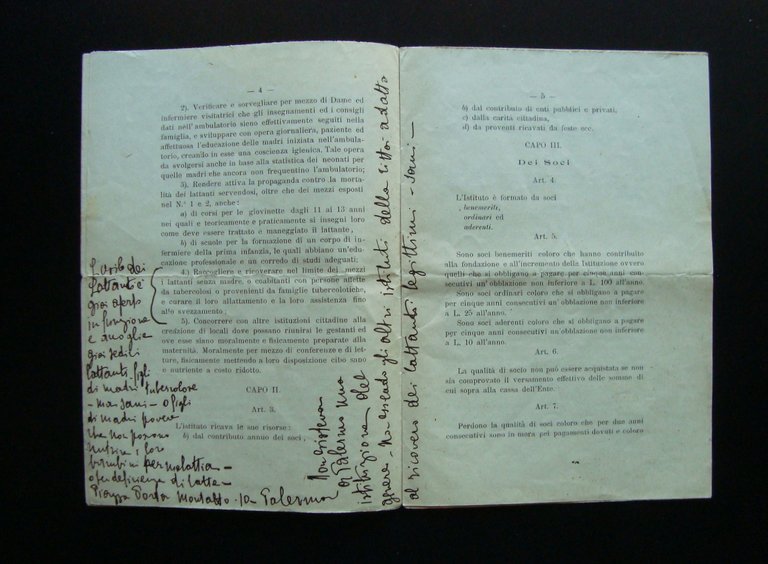 — 4 —
2). Verificare e sorvegliare per mezzo di Dame ed
infermiere visitatrici che gli insegnamenti ed i consigli
dati nell'ambulatorio sieno effettivamente seguiti nella
famiglia, e sviluppare con opera giornaliera, paziente ed
affettuosa l'educazione delle madri iniziata nell'ambula-
torio, creando in esse una coscienza igienica. Tale opera
da svolgersi anche in base alla statistica dei neonati per
quelle madri che ancora non frequentino l'ambulatorio;
3). Rendere attiva la propaganda contro la morta-
lità dei lattanti servendosi, oltre che dei mezzi esposti
nel N.° 1 e 2, anche:
a) di corsi per le giovinette dagli 11 ai 13 anni
nei quali e teoricamente e praticamente si insegni loro
come deve essere trattato e maneggiato il lattante,
b) di scuole per la formazione di un corpo di in-
fermiere della prima infanzia, le quali abbiano un'edu-
cazione professionale e un corredo di studi adeguati;
4.) Raccogliere e ricoverare nel limite dei mezzi
i lattanti senza madre, o coabitanti con persone affette
da tubercolosi o provenienti da famiglie tubercolotiche,
e curare il loro allattamento e la loro assistenza fino
allo svezzamento;
5). Concorrere con altre istituzioni cittadino alla
creazione di locali dove possano riunirsi le gestanti ed
ove esse siano moralmente e fisicamente preparate alla
maternità. Moralmente per mezzo di conferenze e di let-
ture, fisicamente mettendo a loro disposizione cibo sano
e nutriente a costo ridotto.
CAPO II.
Art. 3.
L'istituto ricava le sue risorse:
b) dal contributo annuo dei soci,
L'asilo dei
lattanti è
già aperto
in funzione
e accoglie
già sedici
lattanti figli
di madri tubercolose
- ma sani - o figli
di madri povere
che non possono
nutrire i loro
bambini per malattia -
o per deficienza di latte -
Piazza Porta Montalto - 10 Palermo
Non esisteva
a Palermo una
istituzione del
genere - non essendo gli altri istituti della città adatti
al ricovero dei lattanti legittimi - sani -
— 5 —
b) dal contributo di enti pubblici e privati,
c) dalla carità cittadina,
d) da proventi ricavati da feste ecc.
CAPO III.
Dei Soci
Art. 4.
L'Istituto è formato da soci
, benemeriti,
ordinari ed
aderenti.
Art. 5.
Sono soci benemeriti coloro che hanno contribuito
alla fondazione e all'incremento della Istituzione ovvero
quelli che si obbligano a pagare per cinque anni con-
secutivi un'oblazione non inferiore a L. 100 all'anno.
Sono soci ordinari coloro che si obbligano a pagare
per cinque anni consecutivi un'oblazione non inferiore
a L. 25 all'anno.
Sono soci aderenti coloro che si obbligano a pagare
per cinque anni consecutivi un'oblazione non inferiore
a L. 10 all'anno.
Art. 6.
La qualità di socio non può essere acquistata se non
sia comprovato il versamento effettivo delle somme di
cui sopra alla cassa dell'Ente.
Art. 7.
Perdono la qualità di soci coloro che per due anni
consecutivi sono in mora pei pagamenti dovuti e coloro